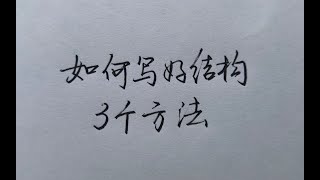 如何写好结构
3个方法